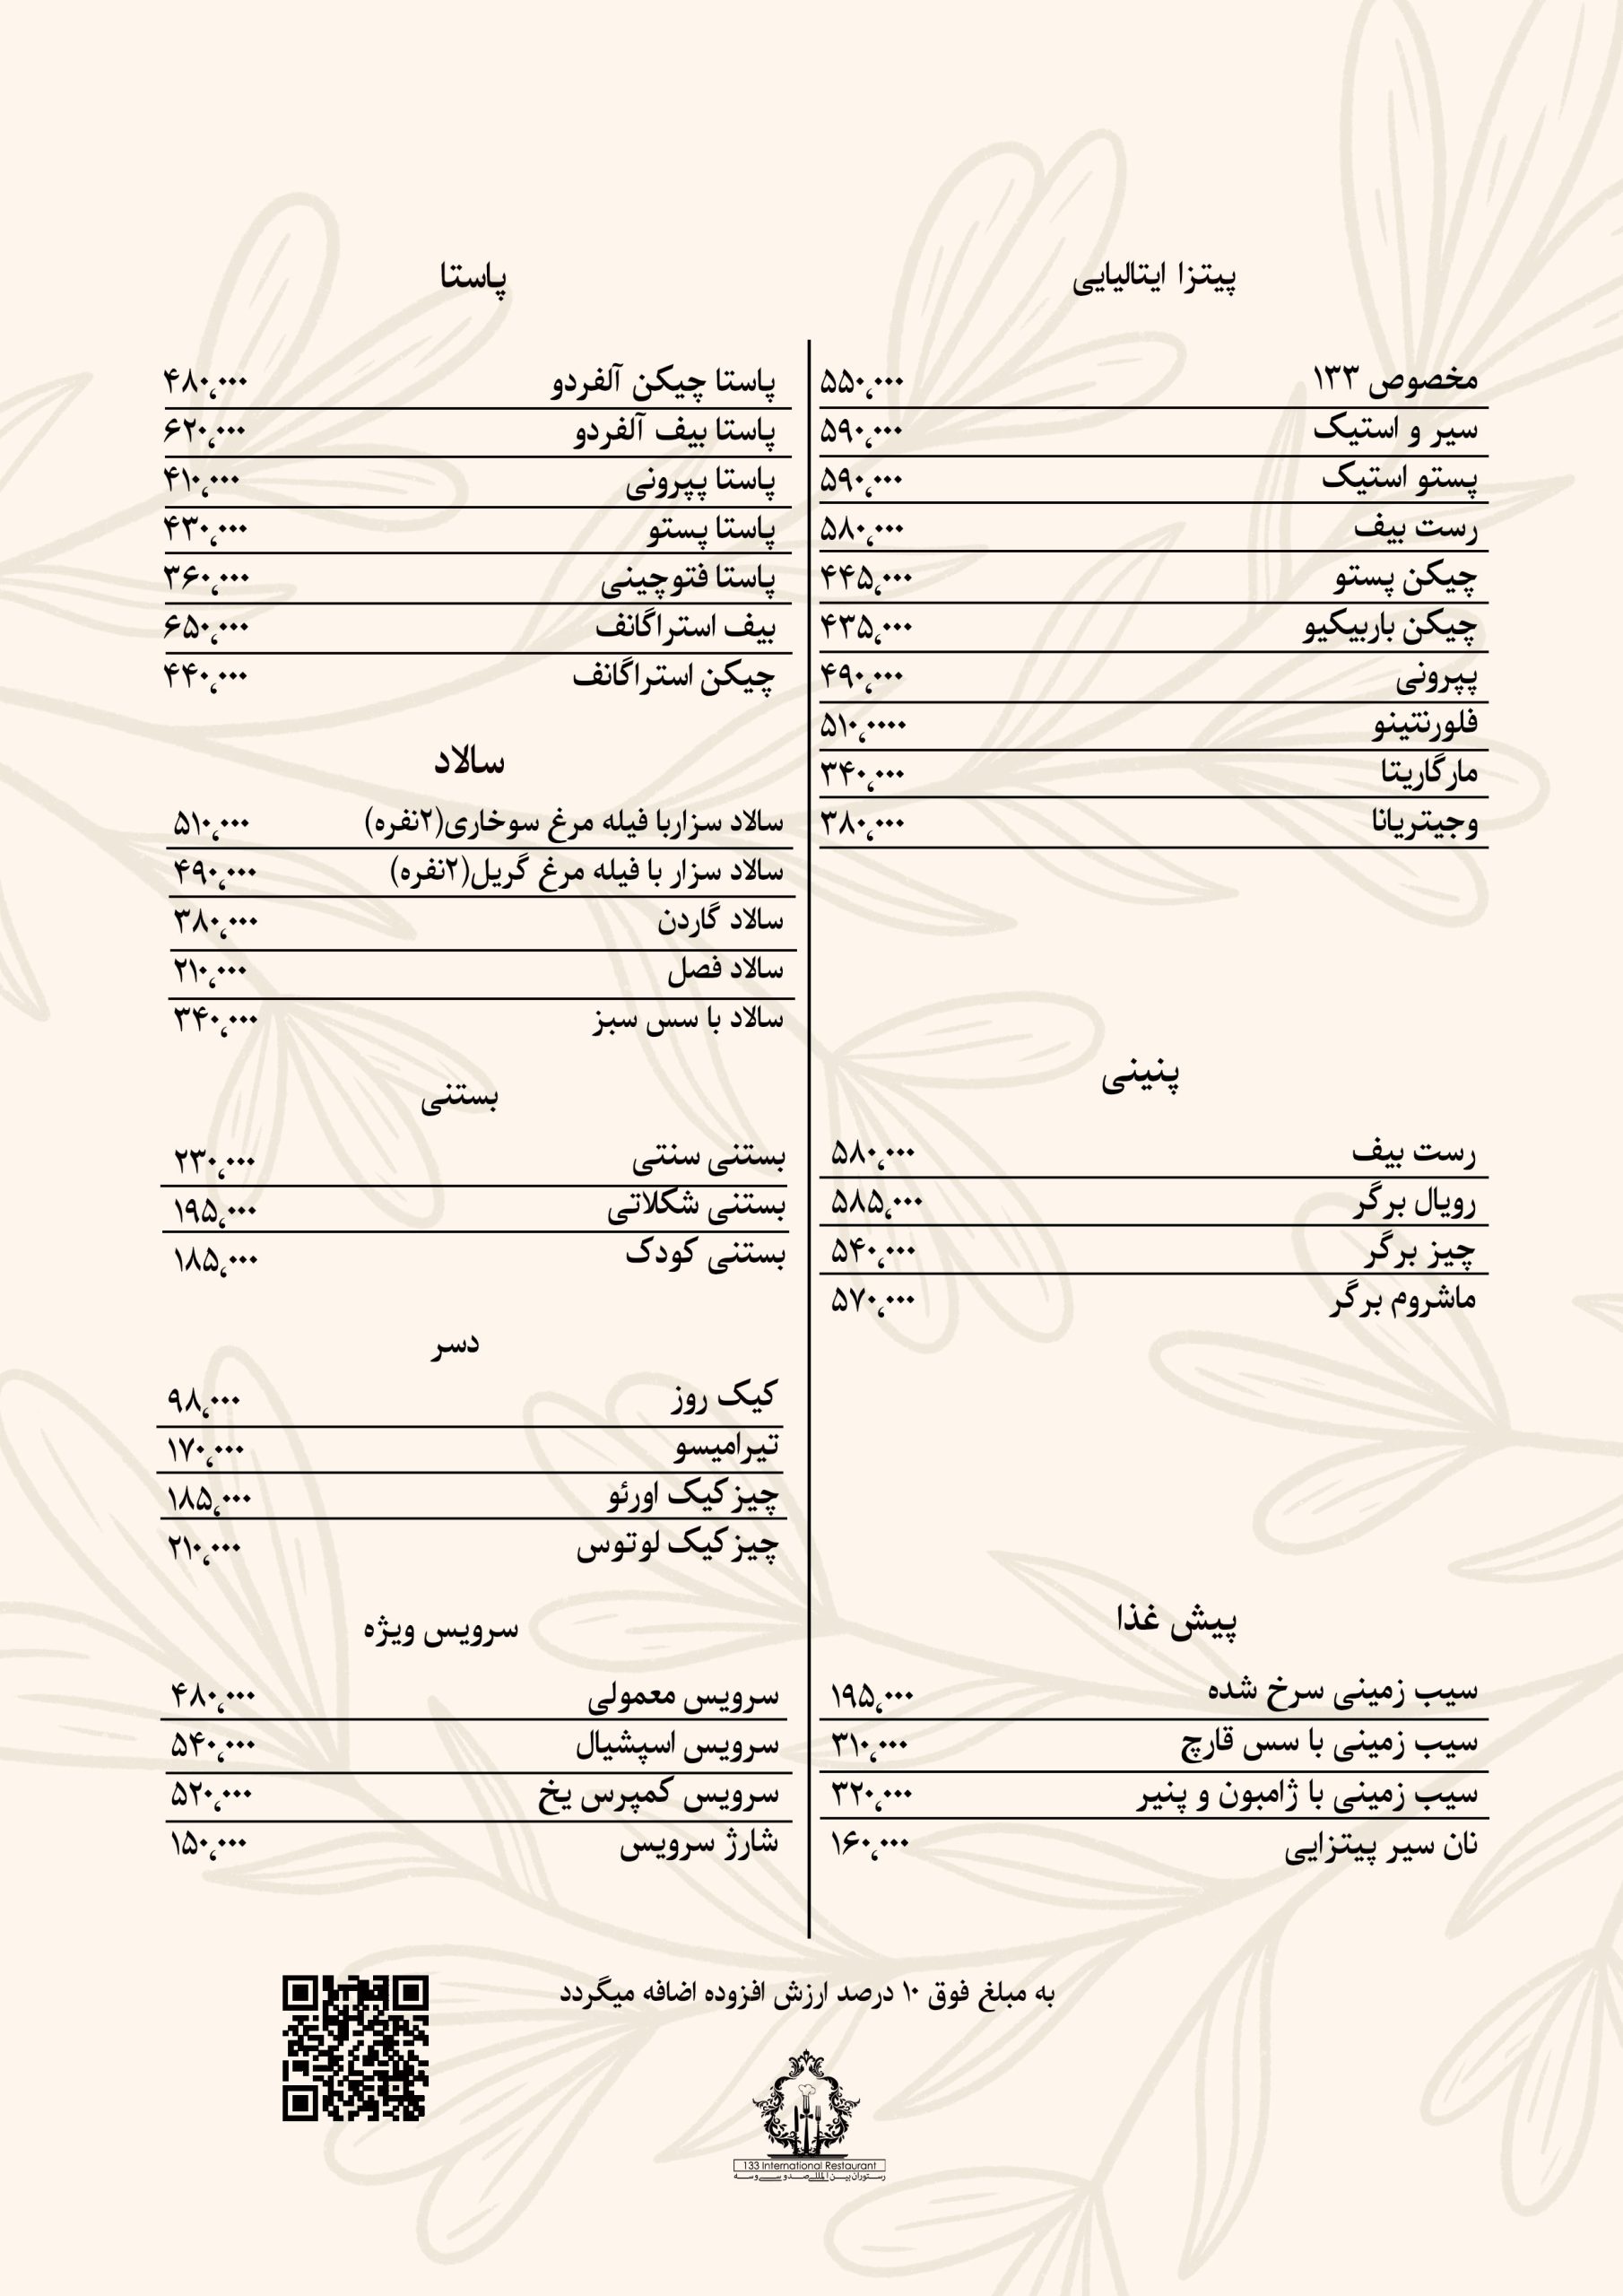 پیتزا ایتالیایی
مخصوص ۱۳۳ ۵۵۰,۰۰۰
سیر و استیک ۵۹۰,۰۰۰
پستو استیک ۵۹۰,۰۰۰
رست بیف ۵۸۰,۰۰۰
چیکن پستو ۴۴۵,۰۰۰
چیکن باربیکیو ۴۳۵,۰۰۰
پپرونی ۴۹۰,۰۰۰
فلورنتینو ۵۱۰,۰۰۰۰
مارگاریتا ۳۴۰,۰۰۰
وجیتریانا ۳۸۰,۰۰۰
پنینی
رست بیف ۵۸۰,۰۰۰
رویال برگر ۵۸۵,۰۰۰
چیز برگر ۵۴۰,۰۰۰
ماشروم برگر ۵۷۰,۰۰۰
پیش غذا
سیب زمینی سرخ شده ۱۹۵,۰۰۰
سیب زمینی با سس قارچ ۳۱۰,۰۰۰
سیب زمینی با ژامبون و پنیر ۳۲۰,۰۰۰
نان سیر پیتزایی ۱۶۰,۰۰۰
پاستا
پاستا چیکن آلفردو ۴۸۰,۰۰۰
پاستا بیف آلفردو ۶۲۰,۰۰۰
پاستا پپرونی ۴۱۰,۰۰۰
پاستا پستو ۴۳۰,۰۰۰
پاستا فتوچینی ۳۶۰,۰۰۰
بیف استراگانف ۶۵۰,۰۰۰
چیکن استراگانف ۴۴۰,۰۰۰
سالاد
سالاد سزاربا فیله مرغ سوخاری(۲نفره) ۵۱۰,۰۰۰
سالاد سزار با فیله مرغ گریل(۲نفره) ۴۹۰,۰۰۰
سالاد گاردن ۳۸۰,۰۰۰
سالاد فصل ۲۱۰,۰۰۰
سالاد با سس سبز ۳۴۰,۰۰۰
بستنی
بستنی سنتی ۲۳۰,۰۰۰
بستنی شکلاتی ۱۹۵,۰۰۰
بستنی کودک ۱۸۵,۰۰۰
دسر
کیک روز ۹۸,۰۰۰
تیرامیسو ۱۷۰,۰۰۰
چیزکیک اورئو ۱۸۵,۰۰۰
چیزکیک لوتوس ۲۱۰,۰۰۰
سرویس ویژه
سرویس معمولی ۴۸۰,۰۰۰
سرویس اسپشیال ۵۴۰,۰۰۰
سرویس کمپرس یخ ۵۲۰,۰۰۰
شارژ سرویس ۱۵۰,۰۰۰
به مبلغ فوق ۱۰ درصد ارزش افزوده اضافه میگردد
133 International Restaurant
رستوران بین المللی صد و سی و سه